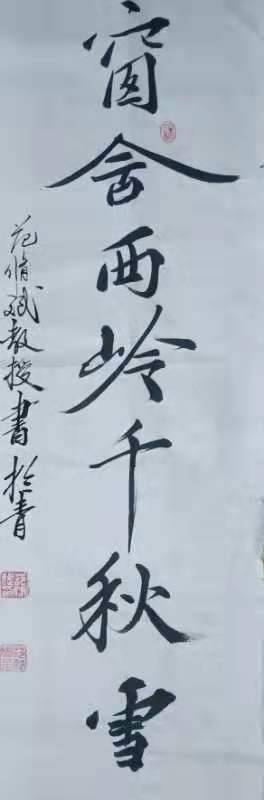 窗含西岭千秋雪
范脩斌教授書於青